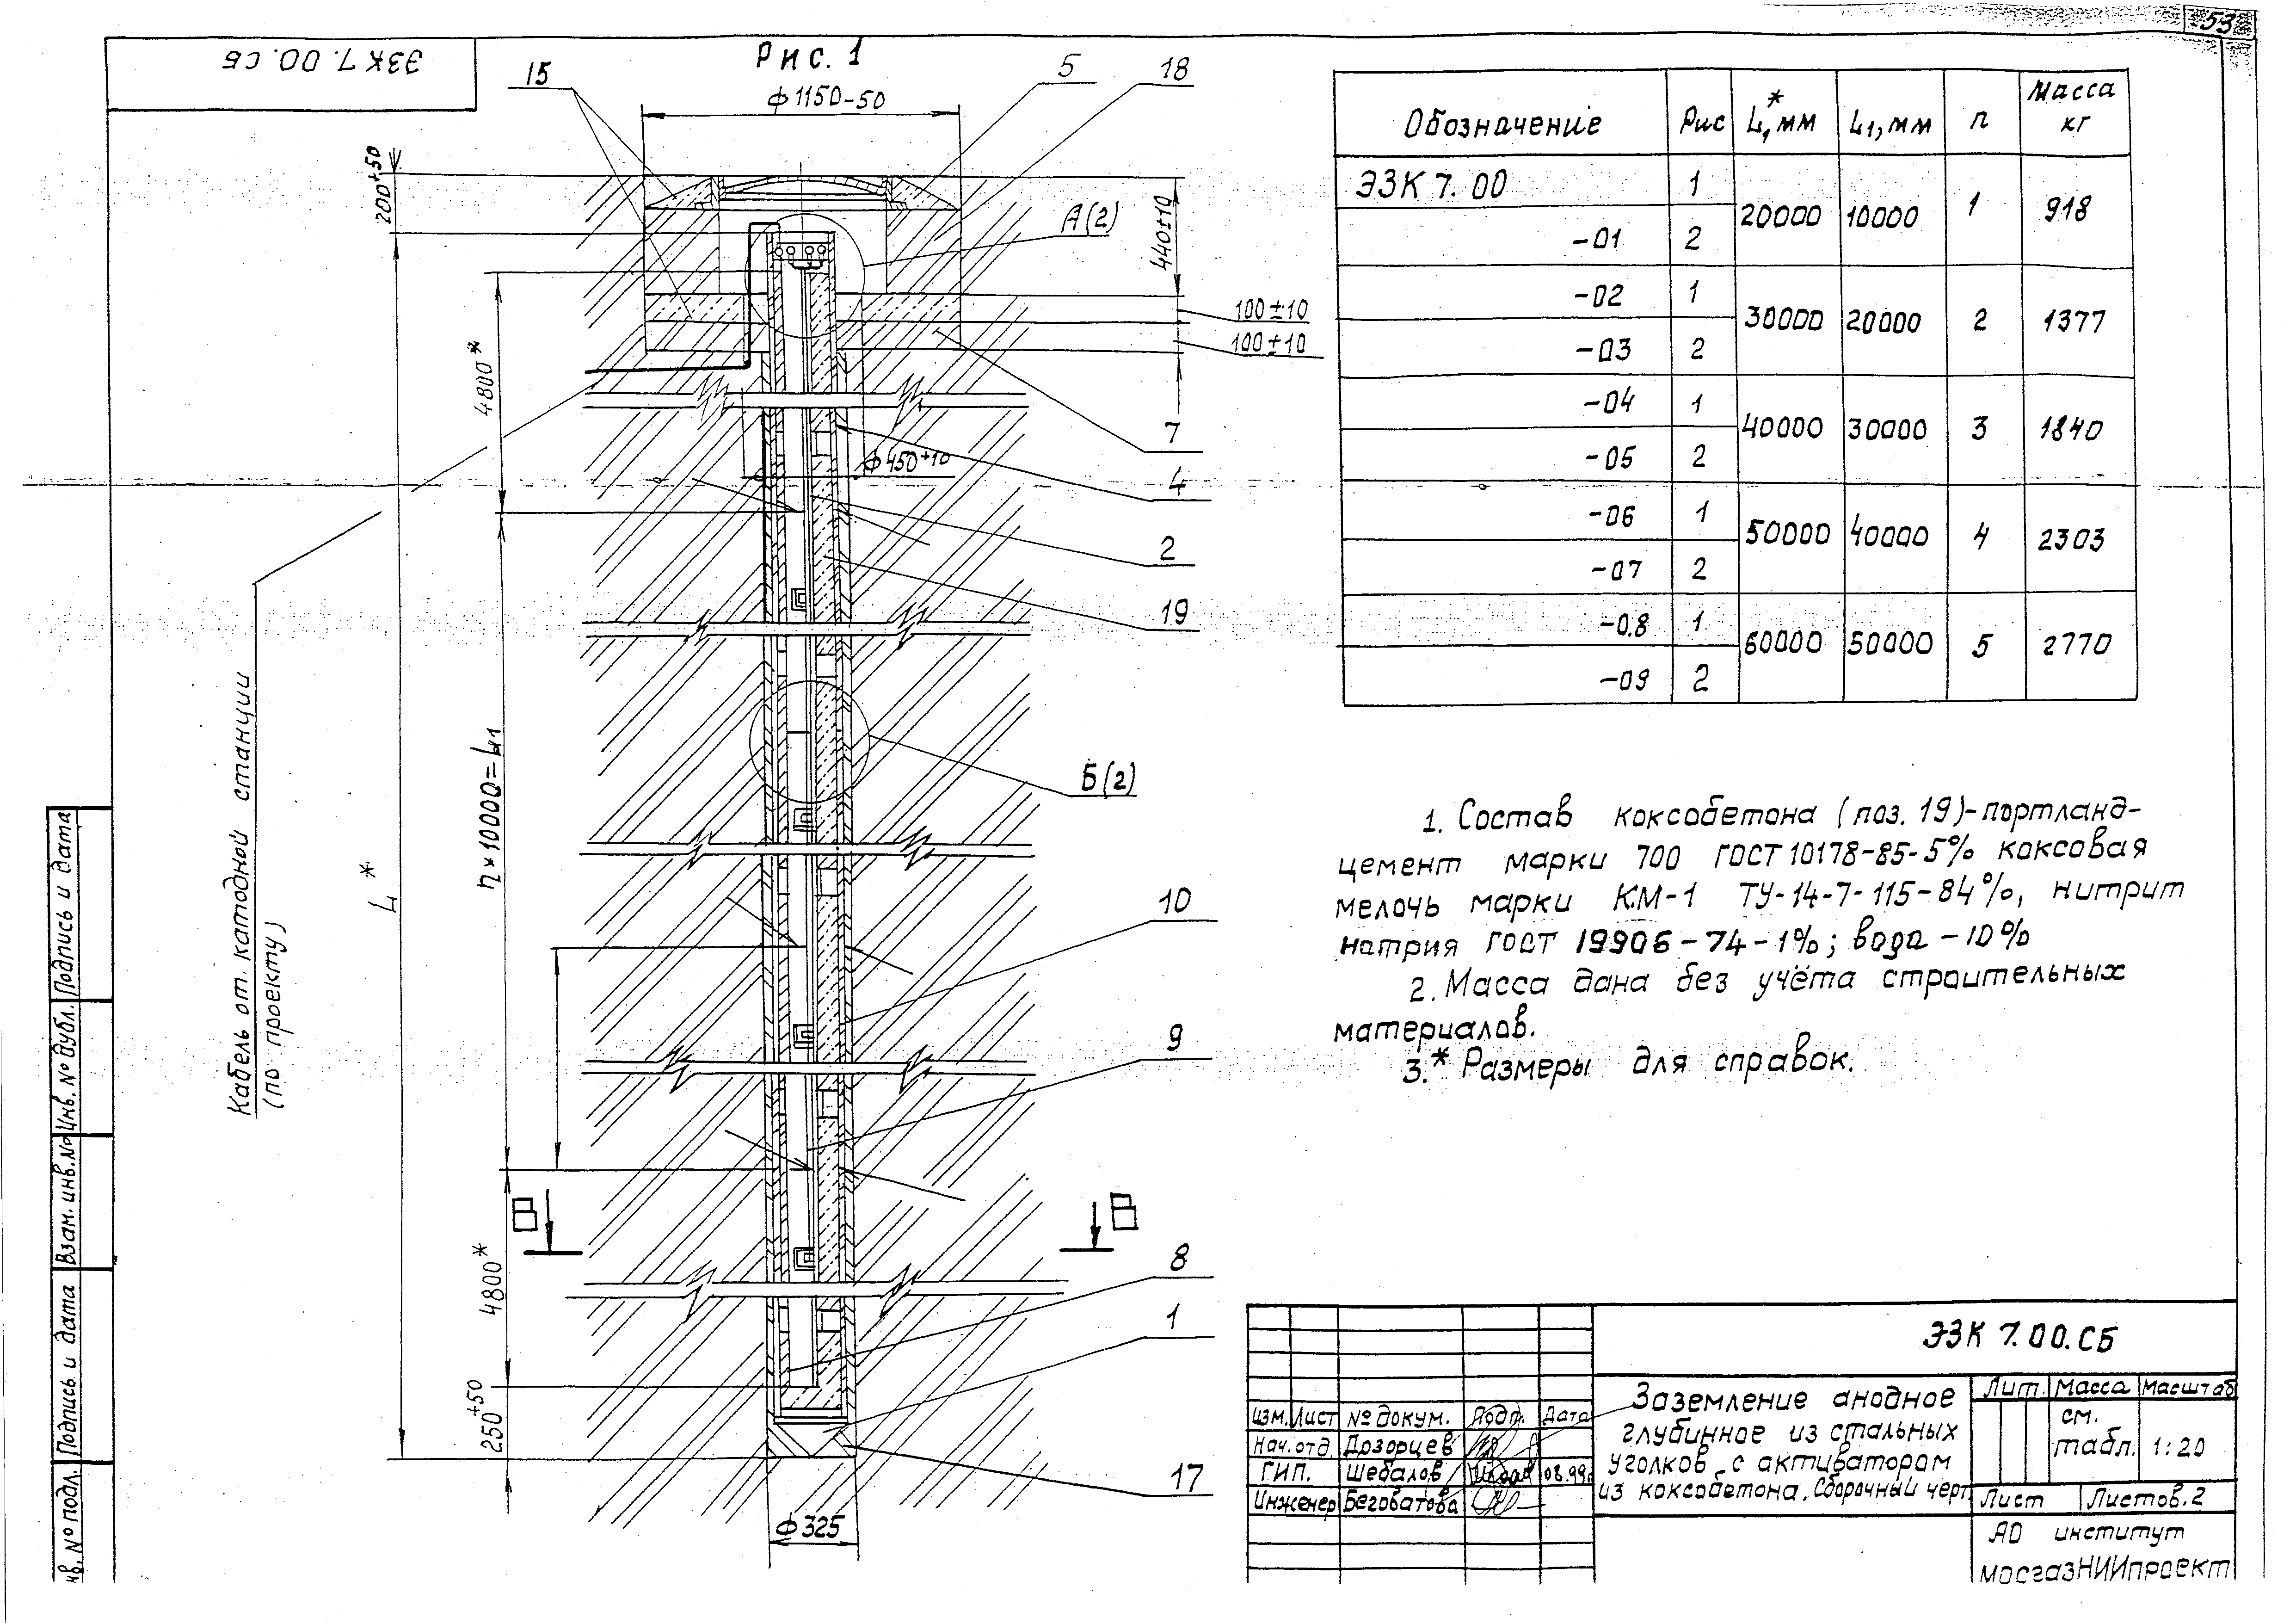 53
ЭЗК 7.00.СБ
Рис. 1
15
5
18
ф1150-50
200+50
А(2)
440±10
100±10
100±10
4800*
7
ф450+10
4
2
19
Кабель от катодной станции
(по проекту)
L*
n×10000=L1
Б(2)
10
9
В
В
4800*
8
1
250+50
17
ф325
Обозначение Рис L*, мм L1, мм n Масса кг
ЭЗК 7.00 1 20000 10000 1 918
-01 2
-02 1 30000 20000 2 1377
-03 2
-04 1 40000 30000 3 1840
-05 2
-06 1 50000 40000 4 2303
-07 2
-0.8 1 60000 50000 5 2770
-09 2
1. Состав коксобетона (поз. 19)-портланд-
цемент марки 700 ГОСТ 10178-85-5% коксовая
мелочь марки КМ-1 ТУ-14-7-115-84%, нитрит
натрия ГОСТ 19906-74-1%; вода -10%
2. Масса дана без учёта строительных
материалов.
3.* Размеры для справок.
Подпись и дата
Инв. № дубл.
Взам. инв. №
Подпись и дата
нв. № подл.
ЭЗК 7.00.СБ
Изм. Лист № докум. Подп. Дата
Нач. отд. Дозорцев
ГИП. Шебалов 08.99г
Инженер Беговатова
Заземление анодное
глубинное из стальных
уголков с активатором
из коксобетона. Сборочный черт
Лит. Масса Масштаб
см.
табл. 1:20
Лист Листов. 2
АО институт
мосгазНИИпроект